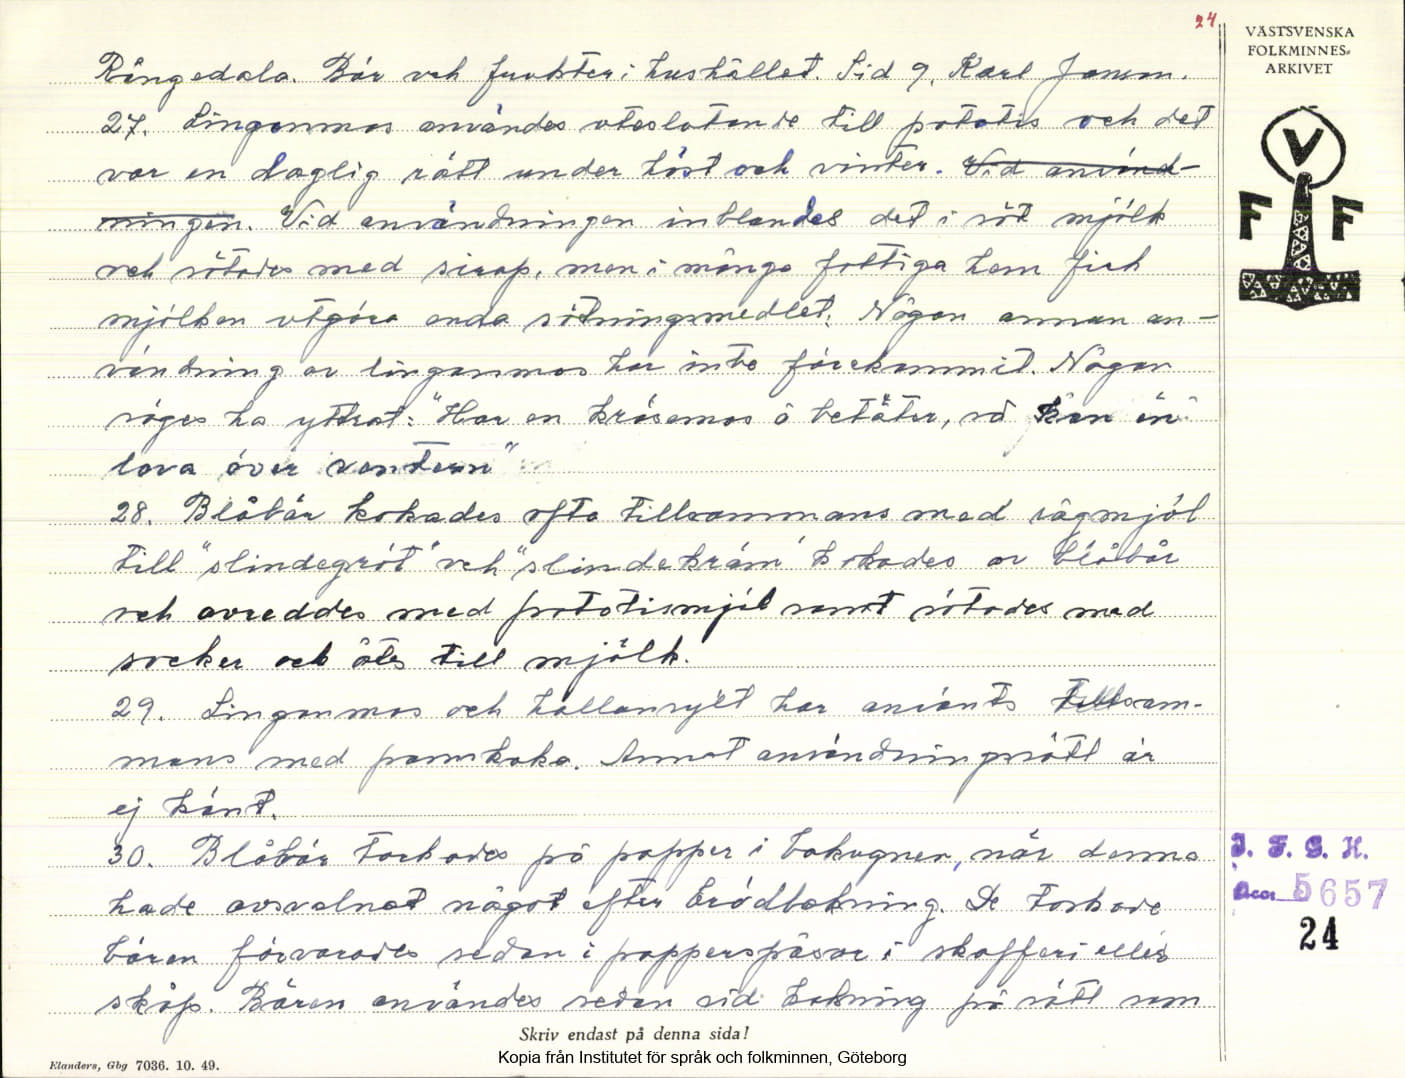 24
VÄSTSVENSKA
FOLKMINNES-
ARKIVET
V
F F
Rångedala. Bär och frukter i hushållet. Sid 9. Karl Jonson.
27. Lingonmos användes uteslutande till potatis och det
var en daglig rätt under höst och vinter. Vid använd-
ningen. Vid användningen inblandes det i söt mjölk
och sötades med sirap, men i många fattiga hem fick
mjölken utgöra enda sötningsmedlet. Någon annan an-
vändning av lingonmos har inte förekommit. Någon
säges ha yttrat: "Har en krösamos å betäter, så kan en
lova över ventern"
28. Blåbär kokades ofta tillsammans med rågmjöl
till "slindegröt" och "slindekräm" kokades av blåbär
och avreddes med potatismjöl samt sötades med
socker och åts till mjölk.
29. Lingonmos och hallonsylt har använts tillsam-
mans med pannkaka. Annat användningssätt är
ej känt.
30. Blåbär torkades på papper i bakugnen, når denna
hade avsvalnat något efter brödbakning. De torkade
bären förvarades sedan i papperspåsar i skafferi eller
skåp. Bären användes sedan vid bakning på sätt som
J. F. G. H.
Acc. 5657
24
Skriv endast på denna sida!
Kopia från Institutet för språk och folkminnen, Göteborg
Elanders, Gbg 7036. 10. 49.